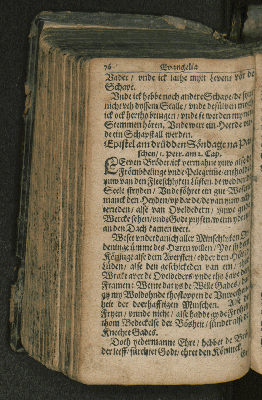 76 Evangelia
Vader / vnde ick lathe myn Levent vör de
Schape.
Vnde ick hebbe noch andere Schape / de synt
nicht vth dyssem Stalle / vnde desülven moth
ick ock herthobringen / vnde se werden myne
Stemmen hören. Vnde wert ein Heerde vnde
ein Schapstall werden.
Epistel am drüdden Söndage na Pa-
schen / 1. Petr. am 2. Cap.
LEeven Bröder ick vermahne yuw alse de
Frömbdelinge vnde Pelegrime / entholdet
yuw van den Fleeschlyken Lüsten / de wedder de
Seele stryden / Vnde föhret ein gut Wo
manck den Heyden / vp dat de de van yuw
vereden / alse van Oveldedern / yuwe gude
Wercke sehen / vnde Godt prysen / wenn yd
an den Dach kamen wert.
Weset vnderdanich aller Minschlyken O
deninge vmme des Heren willen / Id sy dem
Köninge alse dem Aversten / edder den Höv
lüden / alse den geschickeden van em / tho
Wrake aver de Oveldeders / vnde tho Lave den
Framen: Wente dat ys de Wille Gades / dat
gy mit Woldohnde thostoppen de Vnwetenheit
der dorhafftigen Minschen. Alse de
Fryen / vnde nicht / alse hadde gy de Fryheit
thom Deckelse der Bösheit / sünder alse de
Knechte Gades.
Doth yedermanne Ehre / hebbet de Brö-
der leeff / früchtet Godt / ehret den Köninck.